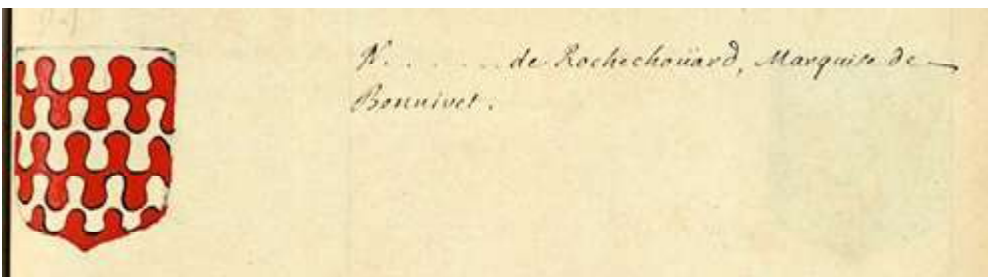 N. . . . . . de Rochechoüard, Marquise de
Bonnivet.